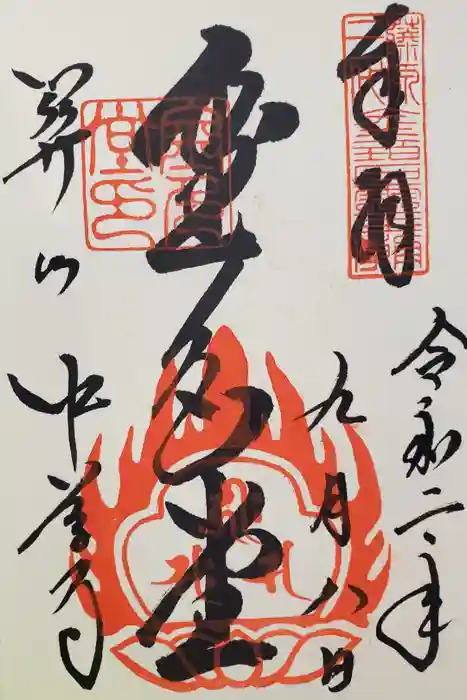 奉拝
令和二年
九月八日
金色堂
関山
中尊寺